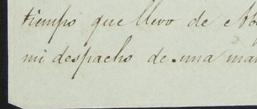 tiempo que llevo de
mi despacho de una